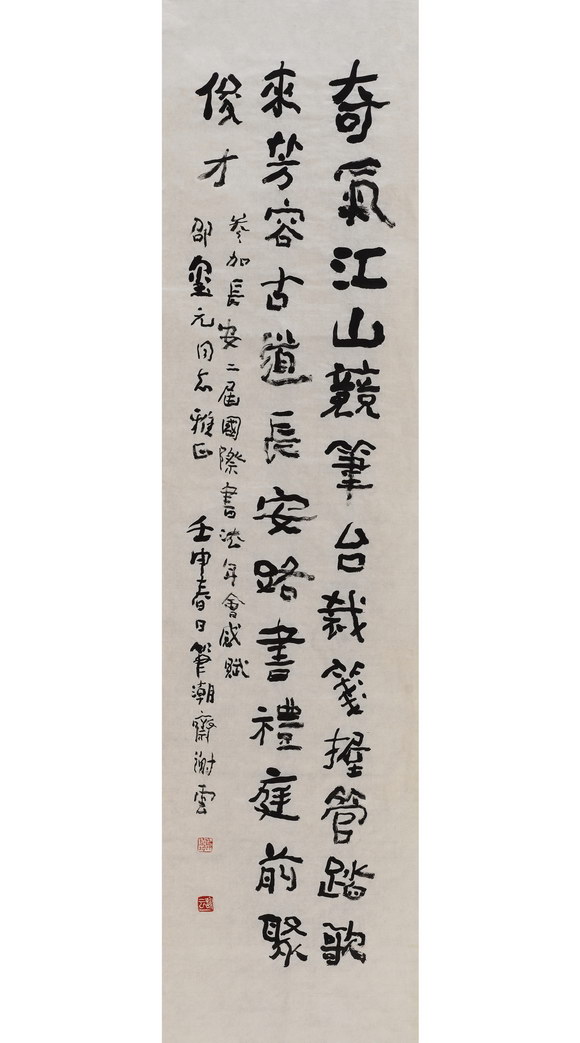 奇氣江山競筆台裁箋握管踏歌
來芳容古道長安路書禮庭前聚
俊才
參加長安二届國際書法年會感賦
邵璽元同志雅正 壬申春日筆潮齋謝雲